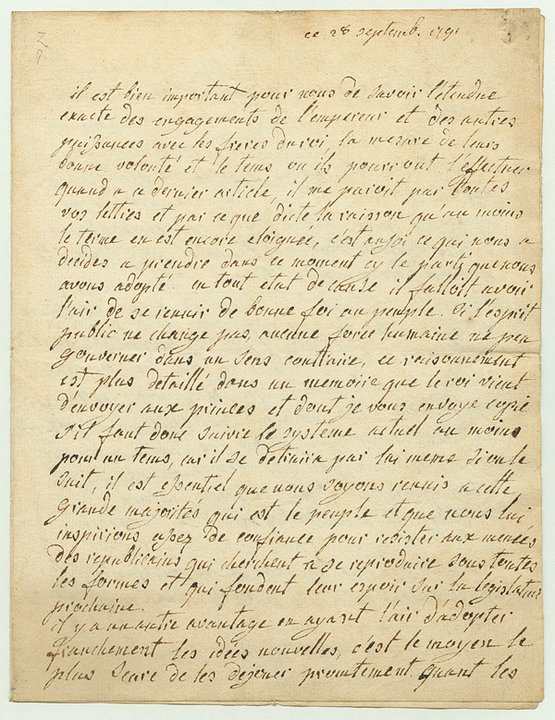 ce 28 septemb. 1791
il est bien important pour nous de savoir l'étendue
exacte des engagements de l'empereur et des autres
puissances avec les freres du roi, la mesure de leurs
bonne volonté et le tems ou ils pourront l'effectuer
quand a ce dernier article, il me paroit par toutes
vos lettres et par ce que dicte la raison qu'au moins
le terme en est encore eloignée, c'est aussi ce qui nous a
decidés a prendre dans ce moment cy le parti que nous
avons adopté. en tout etat de cause il falloit avoir
l'air de se reunir de bonne foi au peuple. si l'esprit
public ne change pas, aucune force humaine ne peu
gouverner dans un sens contraire, ce raisonnement
est plus detaillé dans un memoire que le roi vient
d'envoyer aux princes et dont je vous envoye copie
s'il faut donc suivre le systeme actuel au moins
pour un tems, car il se detruira par lui meme si on le
suit, il est essentiel que nous soyons reunis a cette
grande majorites qui est le peuple et que nous lui
inspirions assez de confiance pour resister aux menées
des republicains qui cherchent a se reproduire sous toutes
les formes et qui fondent leur espoir sur la legislature
prochaine.
il y a un autre avantage en ayant l'air d'adopter
franchement les idées nouvelles, c'est le moyen le
plus seure de les dejouer promtement. quant les